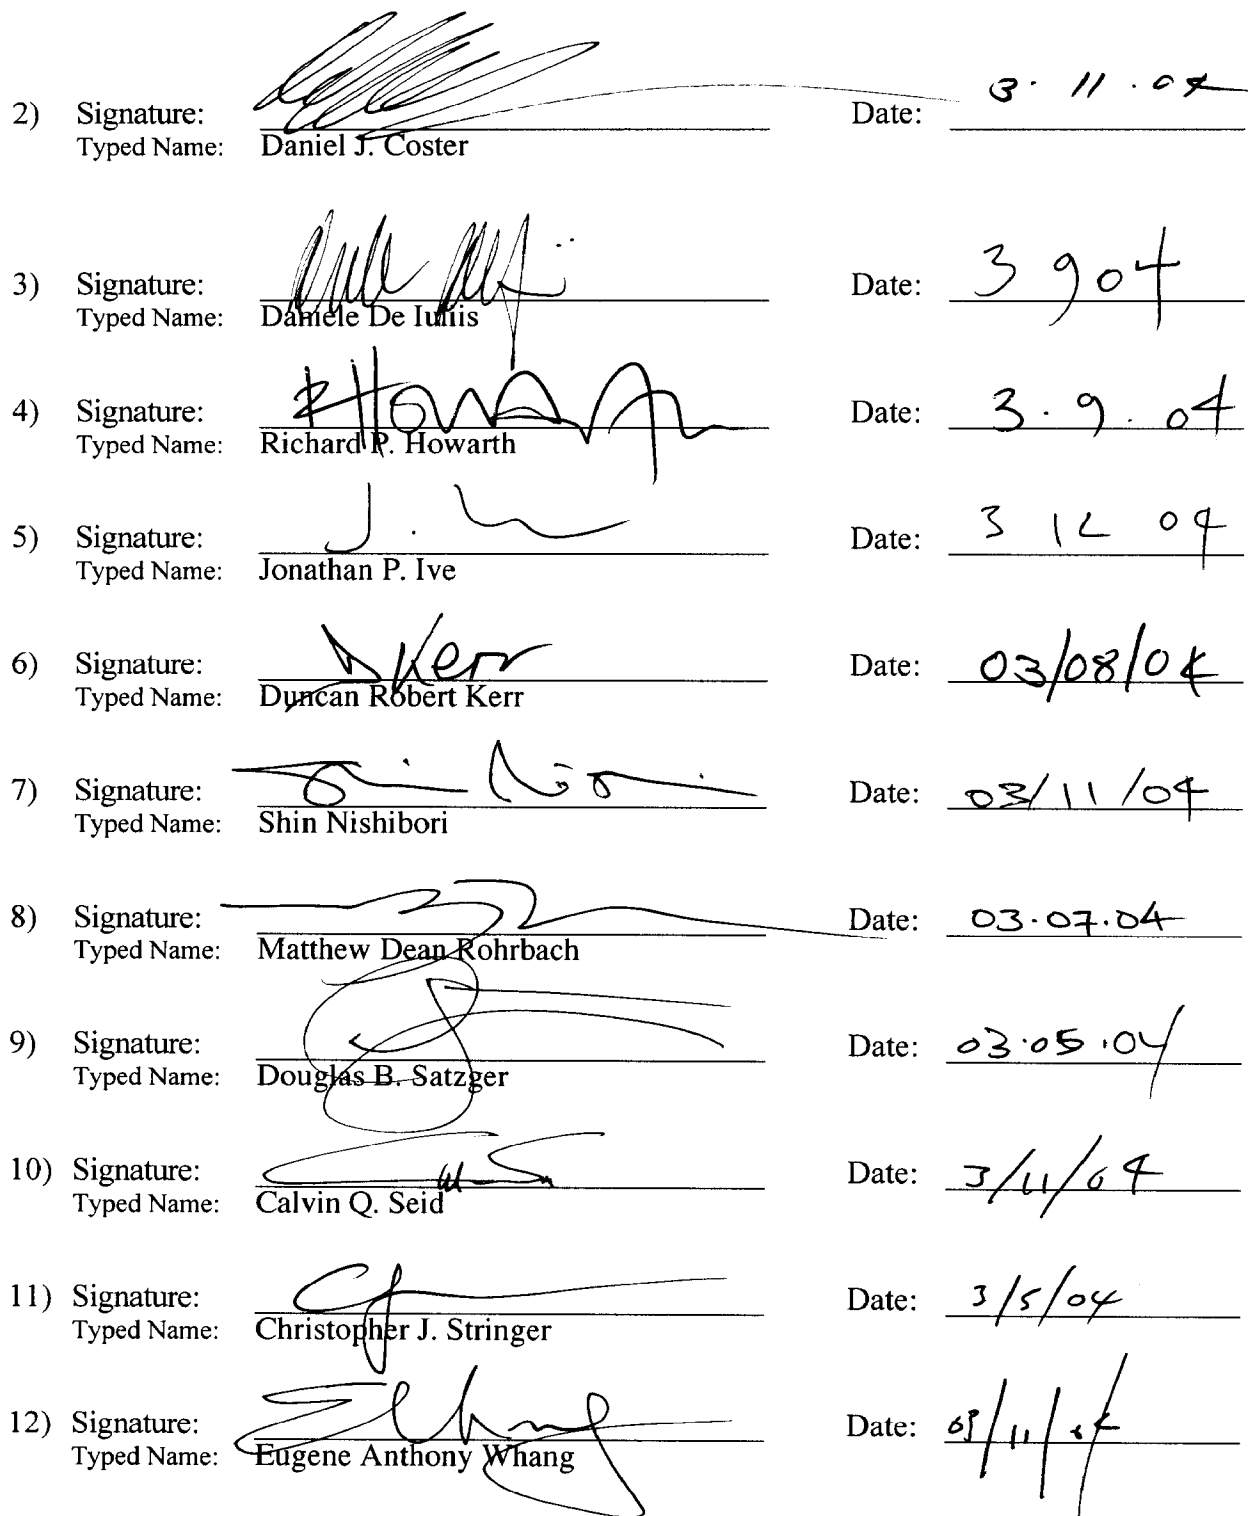 2) Signature: Date: 3 . 11 . 04
Typed Name: Daniel J. Coster
3) Signature: Date: 3 9 04
Typed Name: Daniele De Iuliis
4) Signature: R Howarth Date: 3 . 9 . 04
Typed Name: Richard P. Howarth
5) Signature: Date: 3 12 04
Typed Name: Jonathan P. Ive
6) Signature: DKerr Date: 03/08/04
Typed Name: Duncan Robert Kerr
7) Signature: Date: 03/11/04
Typed Name: Shin Nishibori
8) Signature: Date: 03.07.04
Typed Name: Matthew Dean Rohrbach
9) Signature: Date: 03.05.04
Typed Name: Douglas B. Satzger
10) Signature: Date: 3/11/04
Typed Name: Calvin Q. Seid
11) Signature: Date: 3/5/04
Typed Name: Christopher J. Stringer
12) Signature: Date: 03/11/04
Typed Name: Eugene Anthony Whang